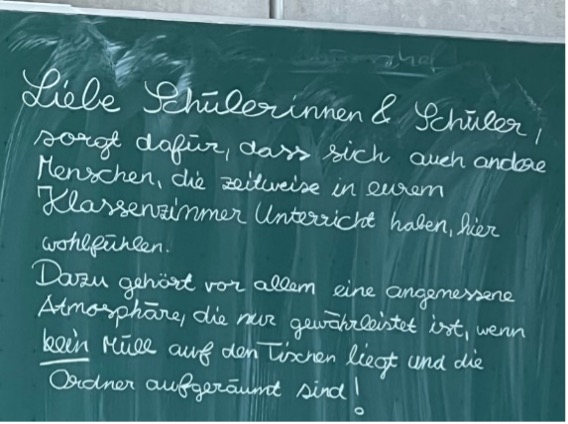 Liebe Schülerinnen & Schüler,
sorgt dafür, dass sich auch andere
Menschen, die zeitweise in eurem
Klassenzimmer Unterricht haben, hier
wohlfühlen.
Dazu gehört vor allem eine angemessene
Atmosphäre, die nur gewährleistet ist, wenn
kein Müll auf den Tischen liegt und die
Ordner aufgeräumt sind!